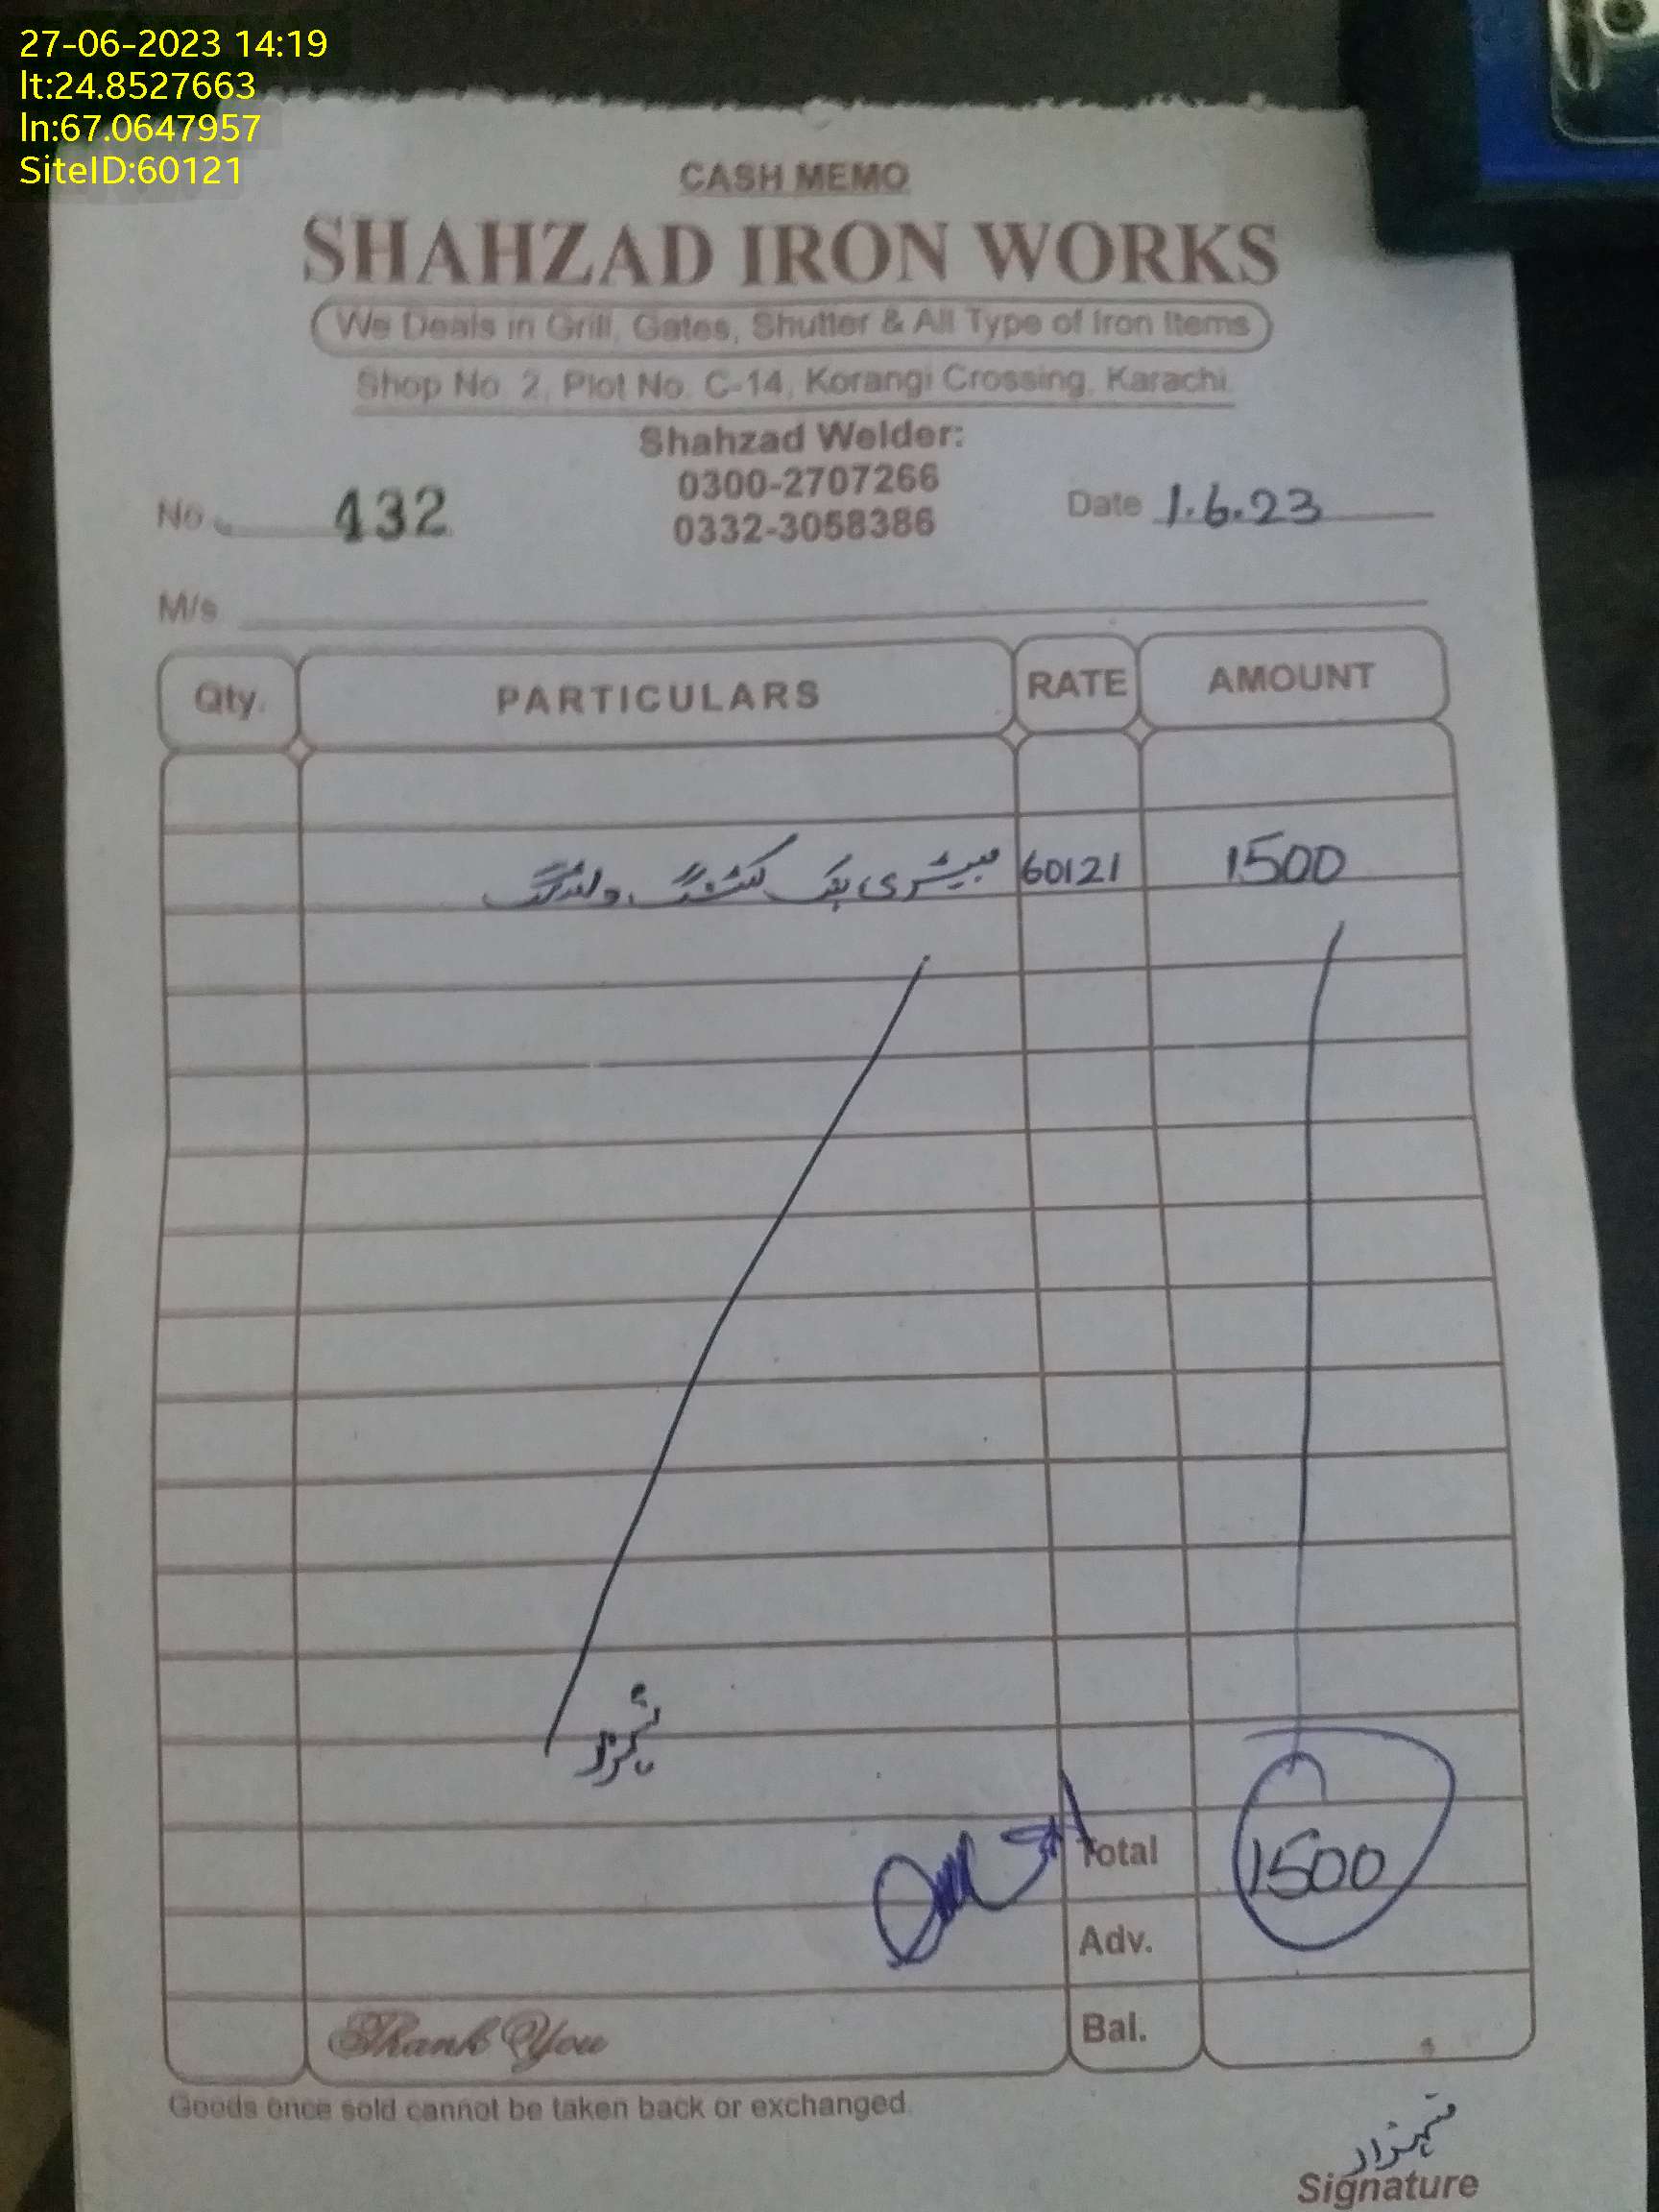 27-06-2023 14:19
lt:24.8527663
ln:67.0647957
SiteID:60121
CASH MEMO
SHAHZAD IRON WORKS
We Deals in Grill, Gates, Shutter & All Type of Iron Items
Shop No. 2, Plot No. C-14, Korangi Crossing, Karachi.
Shahzad Welder:
0300-2707266
0332-3058386
No. 432
Date 1.6.23
M/s
Qty. PARTICULARS RATE AMOUNT
بیٹری بکس کٹنگ ولڈنگ 60121 1500
Total 1500
Adv.
Bal.
Thank You
Goods once sold cannot be taken back or exchanged.
شہزاد
Signature